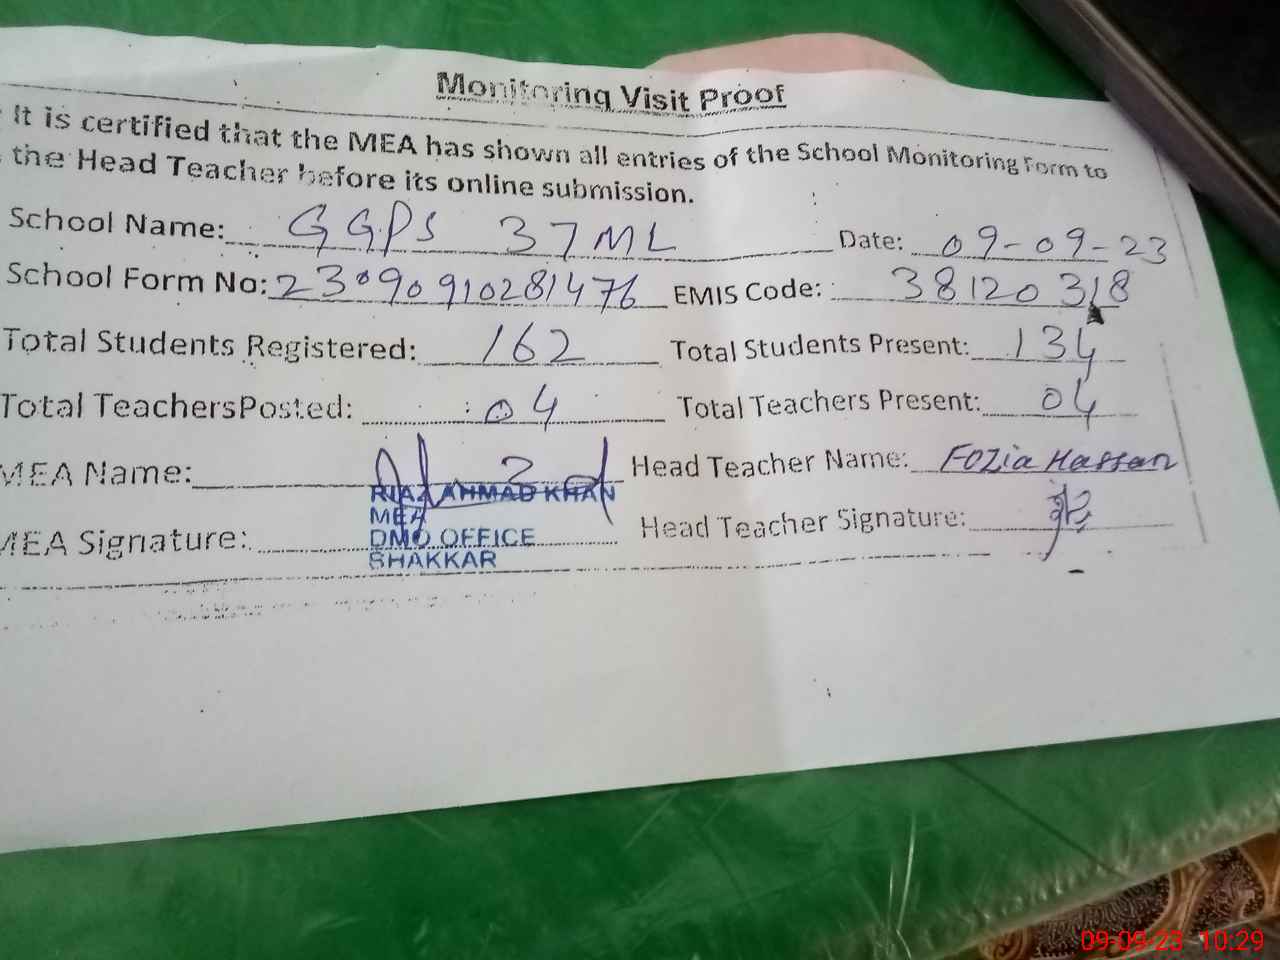 Monitoring Visit Proof
It is certified that the MEA has shown all entries of the School Monitoring Form to
the Head Teacher before its online submission.
School Name: GGPS 37 ML Date: 09-09-23
School Form No: 23090910281476 EMIS Code: 38120318
Total Students Registered: 162 Total Students Present: 134
Total TeachersPosted: 04 Total Teachers Present: 04
MEA Name: Head Teacher Name: Fozia Hassan
RIAZ AHMAD KHAN
MEA
MEA Signature: DMO OFFICE Head Teacher Signature:
BHAKKAR
09-09-23 10:29